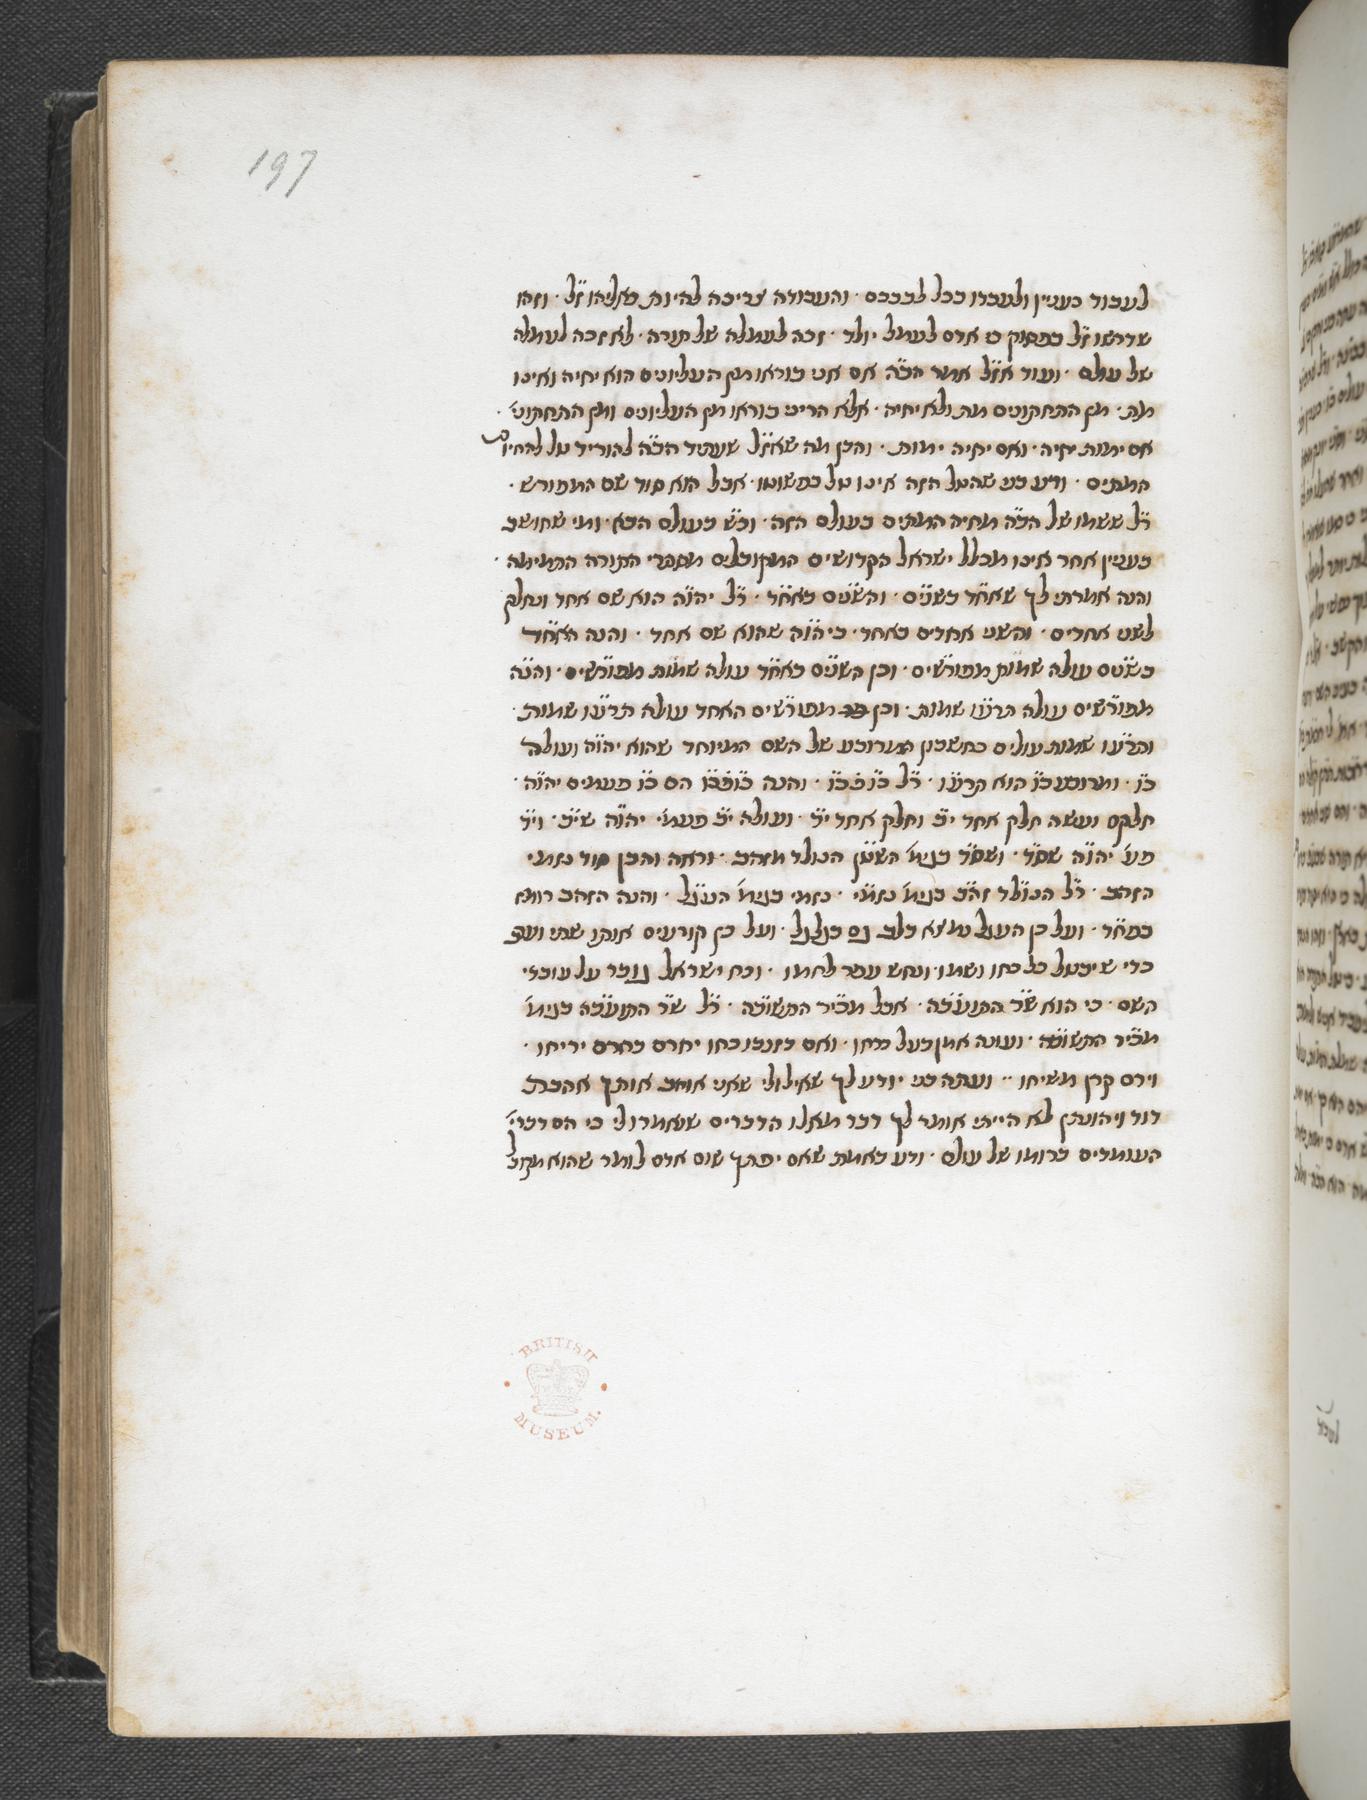 197
לעבוד כעניין ולעבדו בכל לבבכם · והעבודה צריכה להיות כאליהו ז״ל · וזהו
שדרשו ז״ל בפסוק כי אדם לעמל יולד · זכה לעמלה של תורה · לא זכה לעמלה
של עולם · ועוד אז״ל אמר הב״ה אם אני בוראו מן העליונים הוא יחיה ואינו
מת · מן התחתונים מת ולא יחיה · אלא הריני בוראו מן העליונים ומן התחתוני׳ ·
אם ימות יחיה · ואם יחיה ימות · והבן מה שאז״ל שעתיד הב״ה להוריד טל להחיו׳
המתים · ודע בני שהטל הזה אינו טל כפשוטו · אבל הוא סוד שם המפורש ·
ר״ל ששמו של הב״ה מחיה המתים בעולם הזה · וכ״ש בעולם הבא · ומי שחושב
בעניין אחר אינו מכלל ישראל הקדושים המקובלים מסתרי התורה התמימה ·
והנה אמרתי לך שא״חד כש״נים · והש״נים כא״חד · ר״ל יהו״ה הוא שם אחד ונחלק
לשני אחדים · והשני אחדים כאחד · כי הו״ה שהוא שם אחד · והנה הא״חד
כש״נים עולה שמ״ות מפור״שים · וכן הש״נים כא״חד עולה שמ״ות מפור״שים · והנ״ה
מפור״שים עולה תרע״ו שמות · וכן מפור״שים האחד עולה תרע״ו שמות ·
והתרע״ו שמות עולים כחשבון המרובע של השם המיוחד שהוא יהו״ה ועולה
כ״ו · ומרובע כ״ו הוא תרע״ו · ר״ל כ״ו פ׳ כ״ו · והנה כ״ו פ׳ כ״ו הם כ״ו פעמים יהו״ה ·
חלקם ועשה חלק אחד י״ב וחלק אחד י״ד · ועולה י״ב פעמי׳ יהו״ה שי״ב · וי״ד
פע׳ יהו״ה שס״ד · ושס״ד בגימ׳ השט״ן הנולד מזהב · וראה והבן סוד נזמי
הזהב · ר״ל הנו״לד זה״ב בגימ׳ נזמ״י · נזמי בגימ׳ העג״ל · והנה הזהב רומז
במ״ד · ועל כן העגל נמצא בלב גם בגלגל · ועל כן קורעים אותו שתי וערב
כדי שיבטל כל כחו ושמו · ונחש עפר לחמו · וכח ישראל גובר על עובדי
השם · כי הוא ש״ר התוע״בה · אבל מכ״יר התשוב״ה · ר״ל ש״ר התוע״בה בגימ׳
מכ״יר התשוב״ה · ועונה אמן בעל כרחו · ואם כזנבו כחו יחרם כחרם יריחו ·
וירם קרן משיחו ·· ועתה בני יודע לך שאילולי שאני אוהב אותך אהבת
דוד ויהונתן לא הייתי אומר לך דבר מאלו הדברים שאמרו לי כי הם דברי׳
העומדים ברומו של עולם · ודע באמת שאם יפתך שום אדם לומר שהוא מקובל
BRITISH
MUSEUM